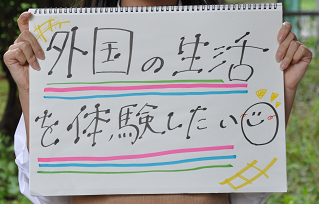 外国の生活
を体験したい